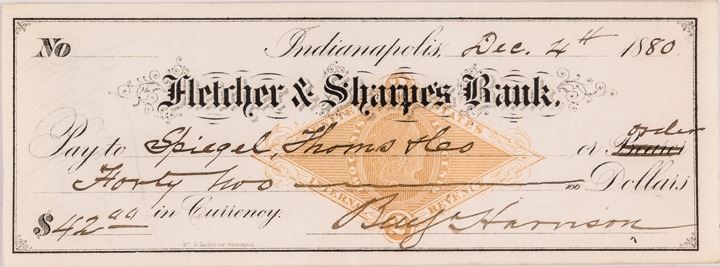 No Indianapolis, Dec. 4th 1880
Fletcher & Sharpe's Bank.
Pay to Spiegel, Thoms & Co or order Bearer
Forty two 100 Dollars
$42.00 in Currency. Benj Harrison
UNITED STATES
INTERNAL REVENUE